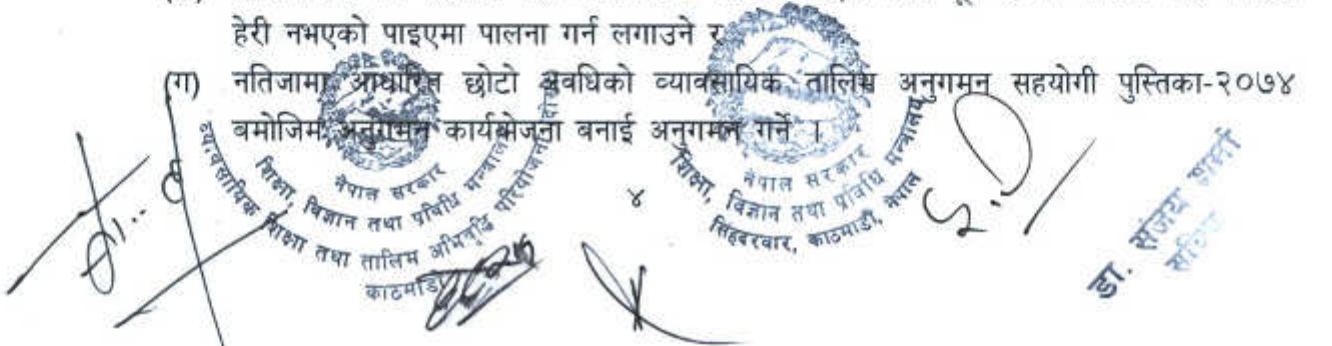 हेरी नभएको पाइएमा पालना गर्न लगाउने र
(ग) नतिजामा आधारित छोटो अवधिको व्यावसायिक तालिम अनुगमन सहयोगी पुस्तिका-२०७४
बमोजिम अनुगमन कार्ययोजना बनाई अनुगमन गर्ने ।
नेपाल सरकार
शिक्षा, विज्ञान तथा प्रविधि मन्त्रालय
व्यावसायिक शिक्षा तथा तालिम अभिवृद्धि परियोजना
काठमाडौं
४
नेपाल सरकार
शिक्षा, विज्ञान तथा प्रविधि मन्त्रालय
सिंहदरवार, काठमाडौं, नेपाल
डा. संजय शर्मा
सचिव